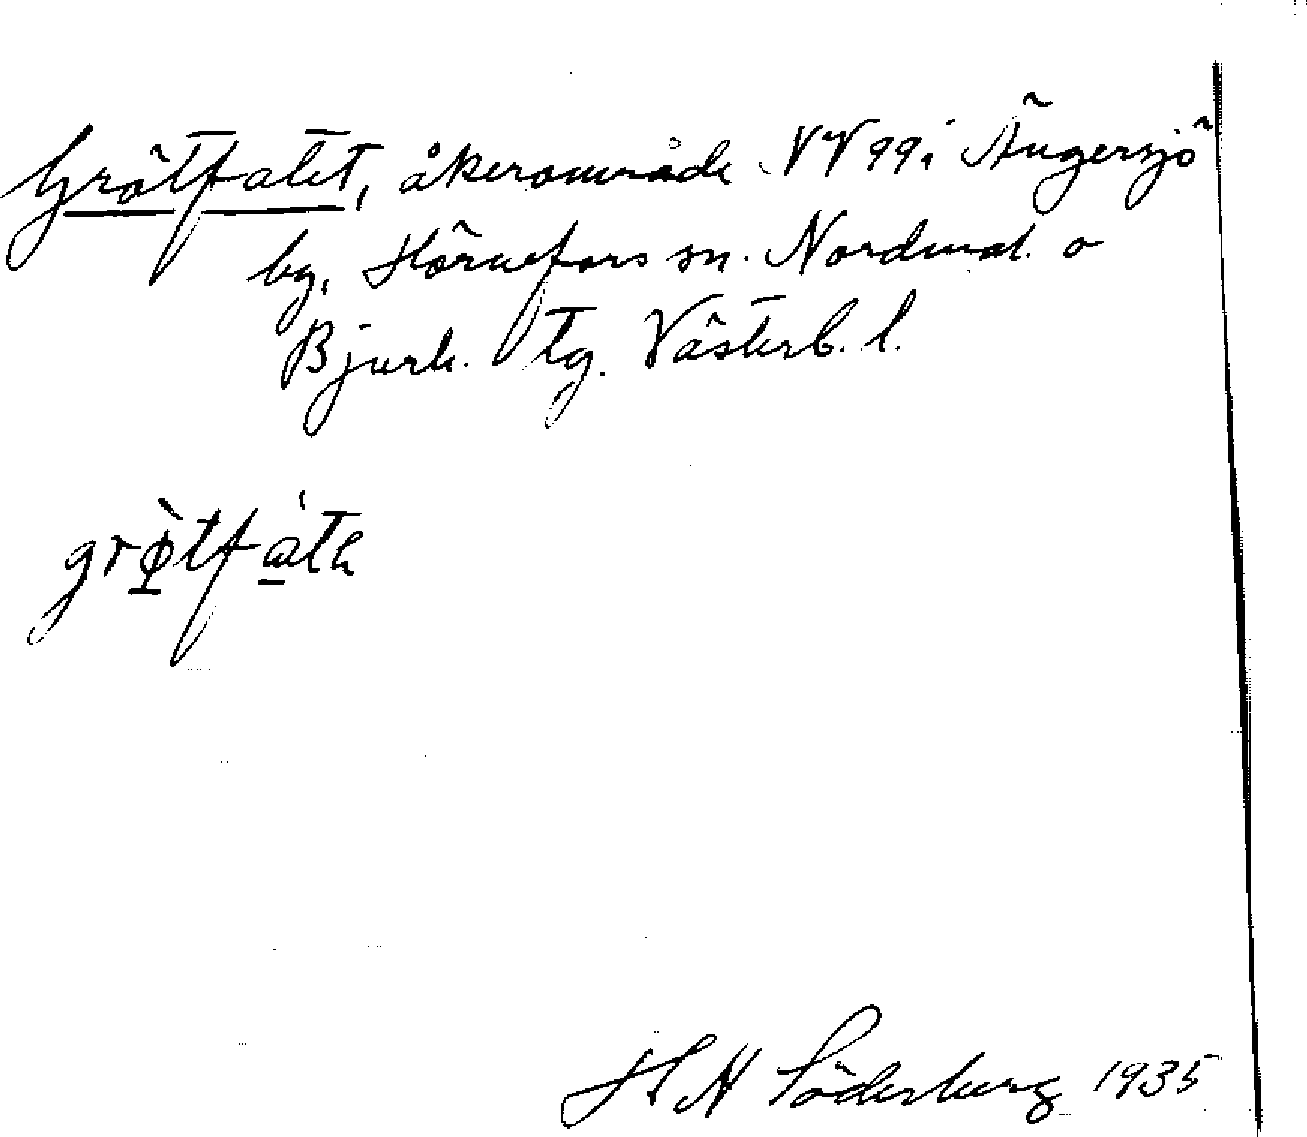 Grötfatet, åkerområde NV 99 i Ängersjö
by, Hörnefors sn. Nordmal. o
Bjurh. tg. Västerb. l.
grø̀tfàtɐ
H N Söderberg 1935